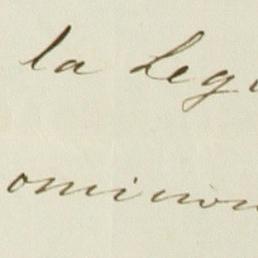 la Leg
ominion